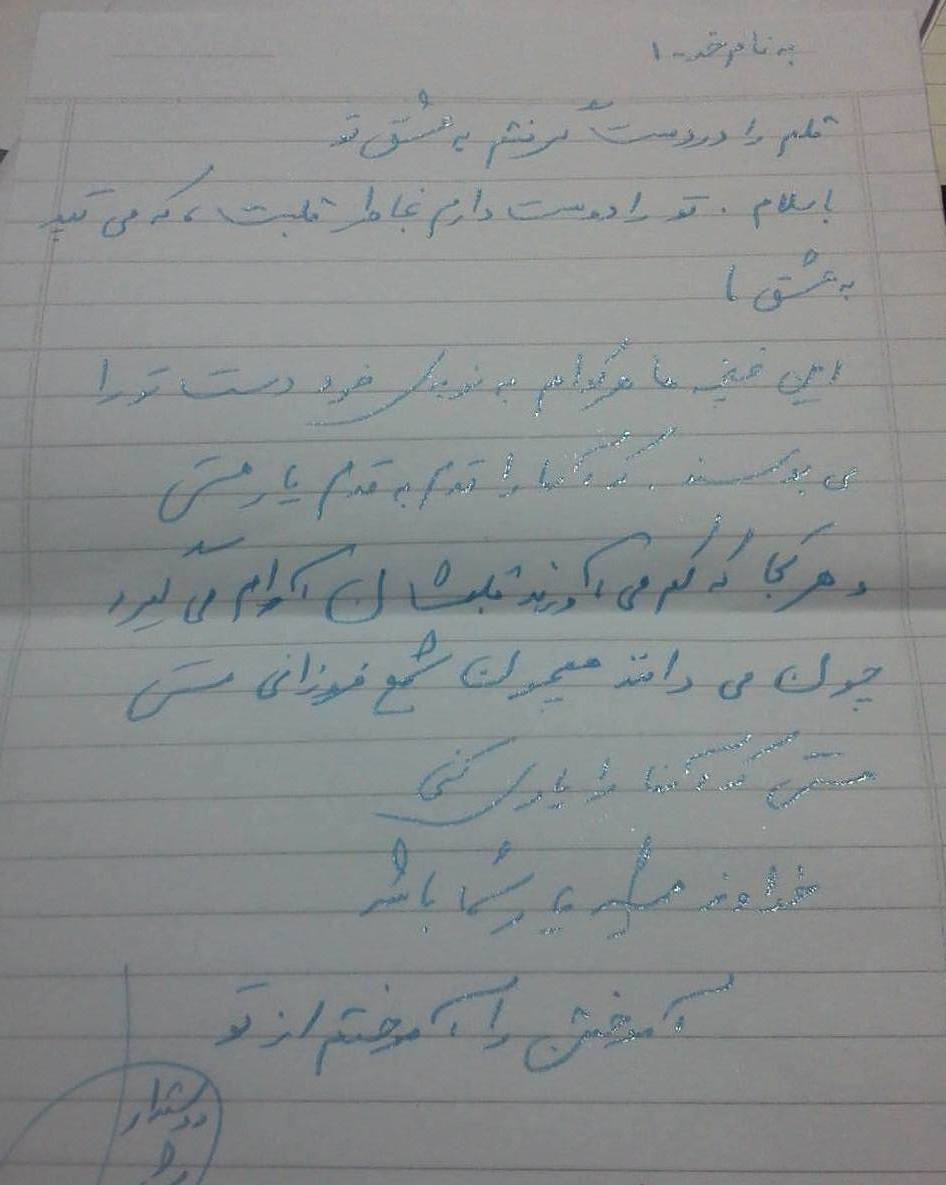 به نام خدا
قلم را در دست گرفتم به عشق تو
باسلام . تو را دوست دارم بخاطر قلبت ، که می تپد
به عشق ما
این غنچه ها هرکدام به نوبه‌ی خود دست تو را
می بوسند . که آنها را قدم به قدم یار هستی
و هر کجا که کم می آورند قلبشان آرام می گیرد
چون می دانند همچون شمع فروزانی هستی
هستی که آنها را یاری کنی
خداوند همیشه یار شما باشد
آموختن را آموختم از تو
دوستدار